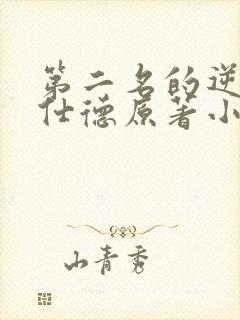 第二名的逆
仕德原著小
山青秀